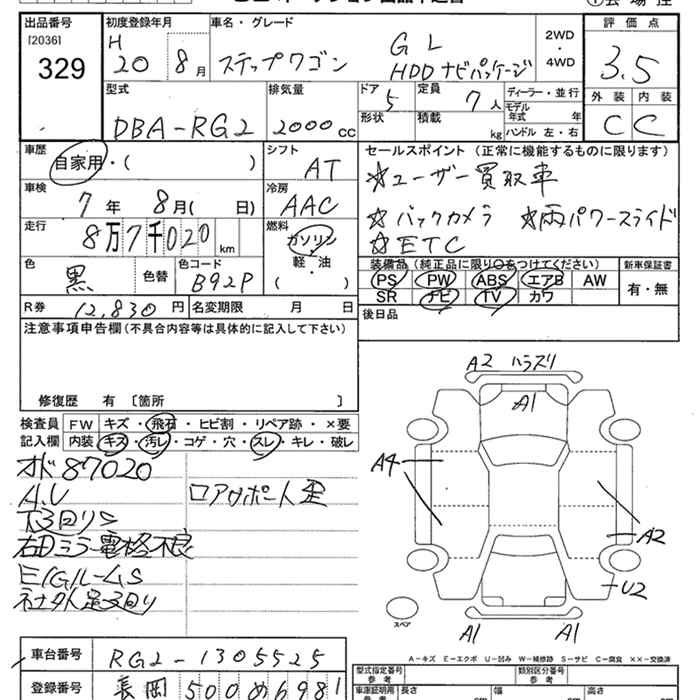 出品番号
[2036]
329
初度登録年月
H
20 8月
車名・グレード
ステップワゴン GL
HDDナビパッケージ
2WD
・
4WD
評価点
3.5
外装 内装
C C
型式
DBA-RG2
排気量
2000cc
ドア
5
定員
7人
形状
積載
kg
ディーラー・並行
モデル
年式 年
ハンドル 左・右
車歴
自家用・( )
シフト
AT
セールスポイント (正常に機能するものに限ります)
☆ユーザー買取車
☆バックカメラ ☆両パワースライド
☆ETC
車検
7年 8月( 日)
冷房
AAC
走行
8万7千020km
燃料
ガソリン
・
軽・油
( )
色
黒
色替
色コード
B92P
装備品 (純正品に限り○をつけてください)
PS PW ABS エアB AW
SR ナビ TV カワ
新車保証書
有・無
R券
12,830円
名変期限 月 日
後日品
注意事項申告欄(不具合内容等は具体的に記入して下さい)
修復歴 有 〔箇所 〕
検査員
記入欄
FW キズ・飛石・ヒビ割・リペア跡・×要
内装 キズ・汚レ・コゲ・穴・スレ・キレ・破レ
オド87020
A.U
下回りS
右Dミラー電格不良
E/GルームS
社外足回り
ロアサポート歪
A2 ハラスリ
A1
A4
A2
U2
A1 A1
スペア
A-キズ E-エクボ U-凹み W-補修跡 S-サビ C-腐食 ××-交換済
車台番号
RG2-1305525
登録番号
長岡 500 め 6981
型式指定番号
参考
類別区分番号
参考
車庫証明用
参考
長さ
cm
幅
cm
高さ
cm